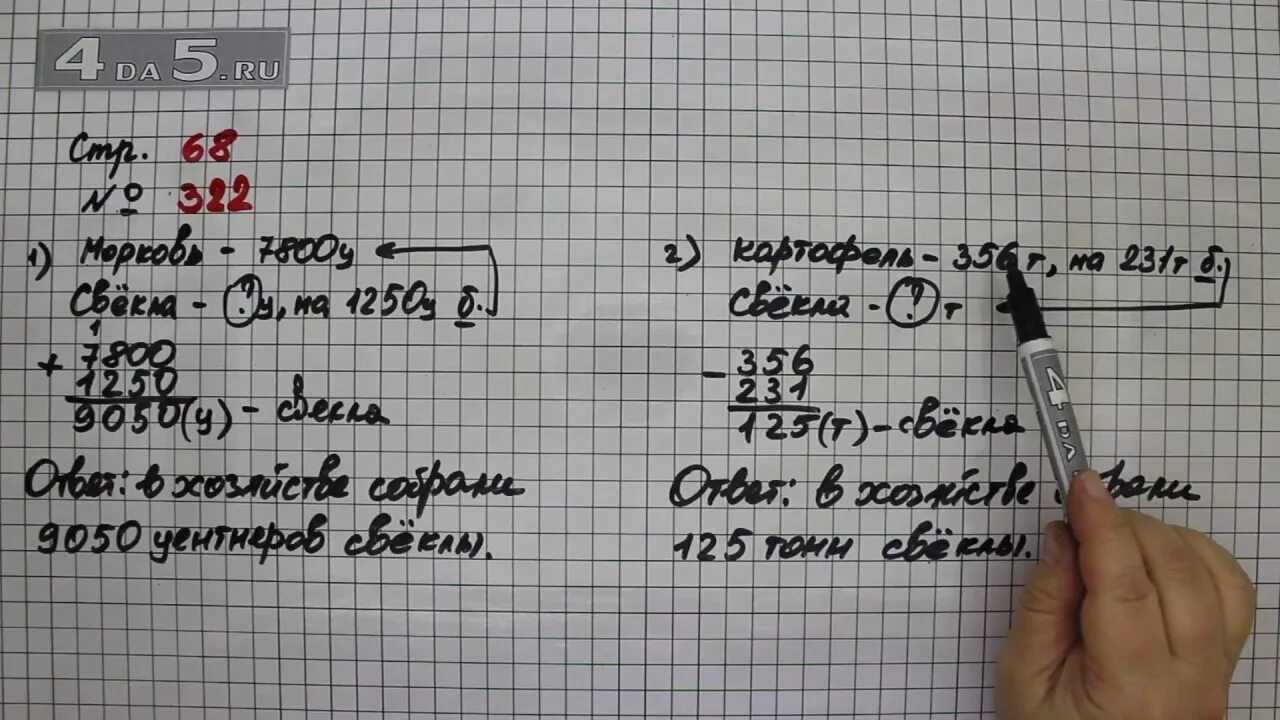 4 DA 5.RU
Стр. 68
№ 322
1) Морковь - 7800ц
Свёкла - ? ц, на 1250ц б.
1
+ 7800
1250
9050(ц) - свекла
Ответ: в хозяйстве собрали
9050 центнеров свёклы.
2) Картофель - 356 т, на 231т б.
Свёкла - ? т
- 356
231
125(т) - свёкла
Ответ: в хозяйстве
125 тонн свёклы.
4 DA